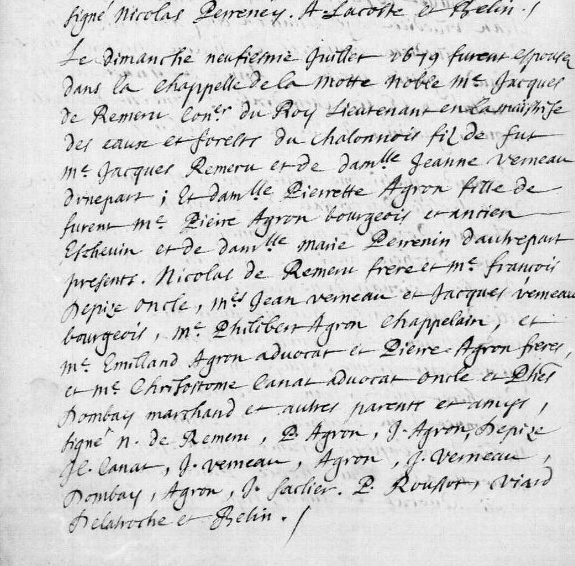 signé Nicolas Perreney. A Lacoste et Belin. /
Le dimanche neufiesme Juillet 1679 furent espousez
dans la chappelle de la Motte noble Mr. Jacques
de Remeru Coner du Roy Lieutenant en la maistrise
des eaux et forests du Chalonnois fil de fut
Mr. Jacques Remeru et de damlle Jeanne Verneau
d'unepart ; Et damlle Pierrette Agron fille de
furent Mr. Pierre Agron bourgeois et ancien
Eschevin et de damlle marie Perrenin d'autrepart
presents. Nicolas de Remeru frere et Mr. francois
Depize oncle, Mrs Jean verneau et Jacques verneau
bourgeois, Mr. Philibert Agron chappelain, et
Mr. Emilland Agron advocat et Pierre Agron freres,
et Mr. Chrisostome Canat advocat oncle et
Dombay marchand et autres parents et amys,
signé n. de Remeru, P. Agron, J. Agron, Depize
Canat, J. verneau, Agron, J. verneau,
Dombay, Agron, J. P. Roussot, viard
Delaroche et Belin. /